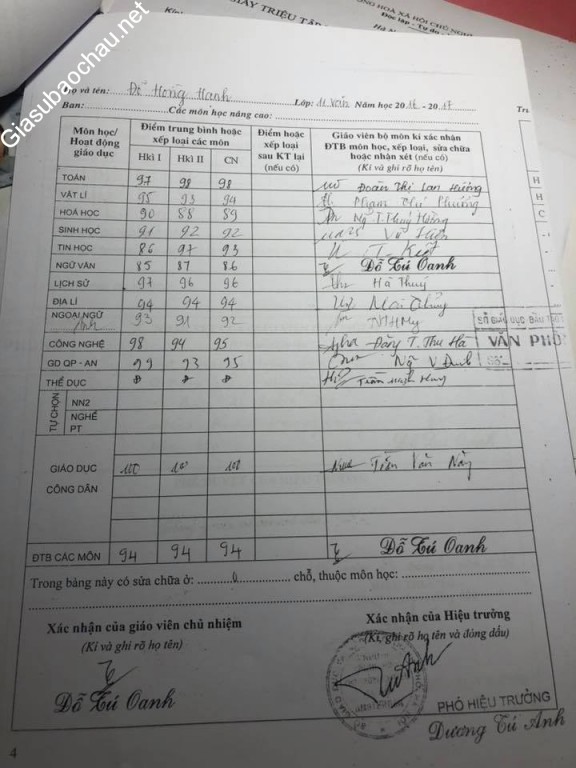 GIẤY TRIỆU TẬP
CỘNG HOÀ XÃ HỘI CHỦ NGHĨA
Độc lập - Tự do
Giasubaochau.net
Họ và tên: Đỗ Hồng Hạnh Lớp: 11 Văn Năm học 2016 - 2017
Ban: Các môn học nâng cao:
Môn học/ Hoạt động giáo dục
Điểm trung bình hoặc xếp loại các môn
Hkì I Hkì II CN
Điểm hoặc xếp loại sau KT lại (nếu có)
Giáo viên bộ môn kí xác nhận ĐTB môn học, xếp loại, sửa chữa hoặc nhận xét (nếu có)
(Kí và ghi rõ họ tên)
TOÁN 97 98 98 Đoàn Thị Lan Hương
VẬT LÍ 95 93 94 Phạm Thư Phương
HOÁ HỌC 90 88 89 Ngô T. Thuý Hường
SINH HỌC 91 92 92
TIN HỌC 86 97 93
NGỮ VĂN 85 87 86 Đỗ Tú Oanh
LỊCH SỬ 97 96 96 Hà Thuý
ĐỊA LÍ 94 94 94
NGOẠI NGỮ Anh 93 91 92
CÔNG NGHỆ 98 94 95 Đặng T. Thu Hà
VĂN PHÒ
GD QP - AN 99 93 95
THỂ DỤC đ đ đ
TỰ CHỌN
NN2
NGHỀ PT
GIÁO DỤC CÔNG DÂN 100 100 100 Trần Văn Nảy
ĐTB CÁC MÔN 94 94 94 Đỗ Tú Oanh
Trong bảng này có sửa chữa ở: 0 chỗ, thuộc môn học:
Xác nhận của giáo viên chủ nhiệm
(Kí và ghi rõ họ tên)
Đỗ Tú Oanh
Xác nhận của Hiệu trưởng
(Kí, ghi rõ họ tên và đóng dấu)
PHÓ HIỆU TRƯỞNG
Dương Tú Anh
4